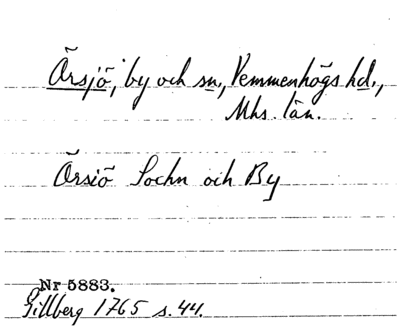 Örsjö, by och sn, Vemmenhögs hd.,
Mhs. län.
Örsiö Sochn och By
Nr 5883.
Gillberg 1765 s. 44.